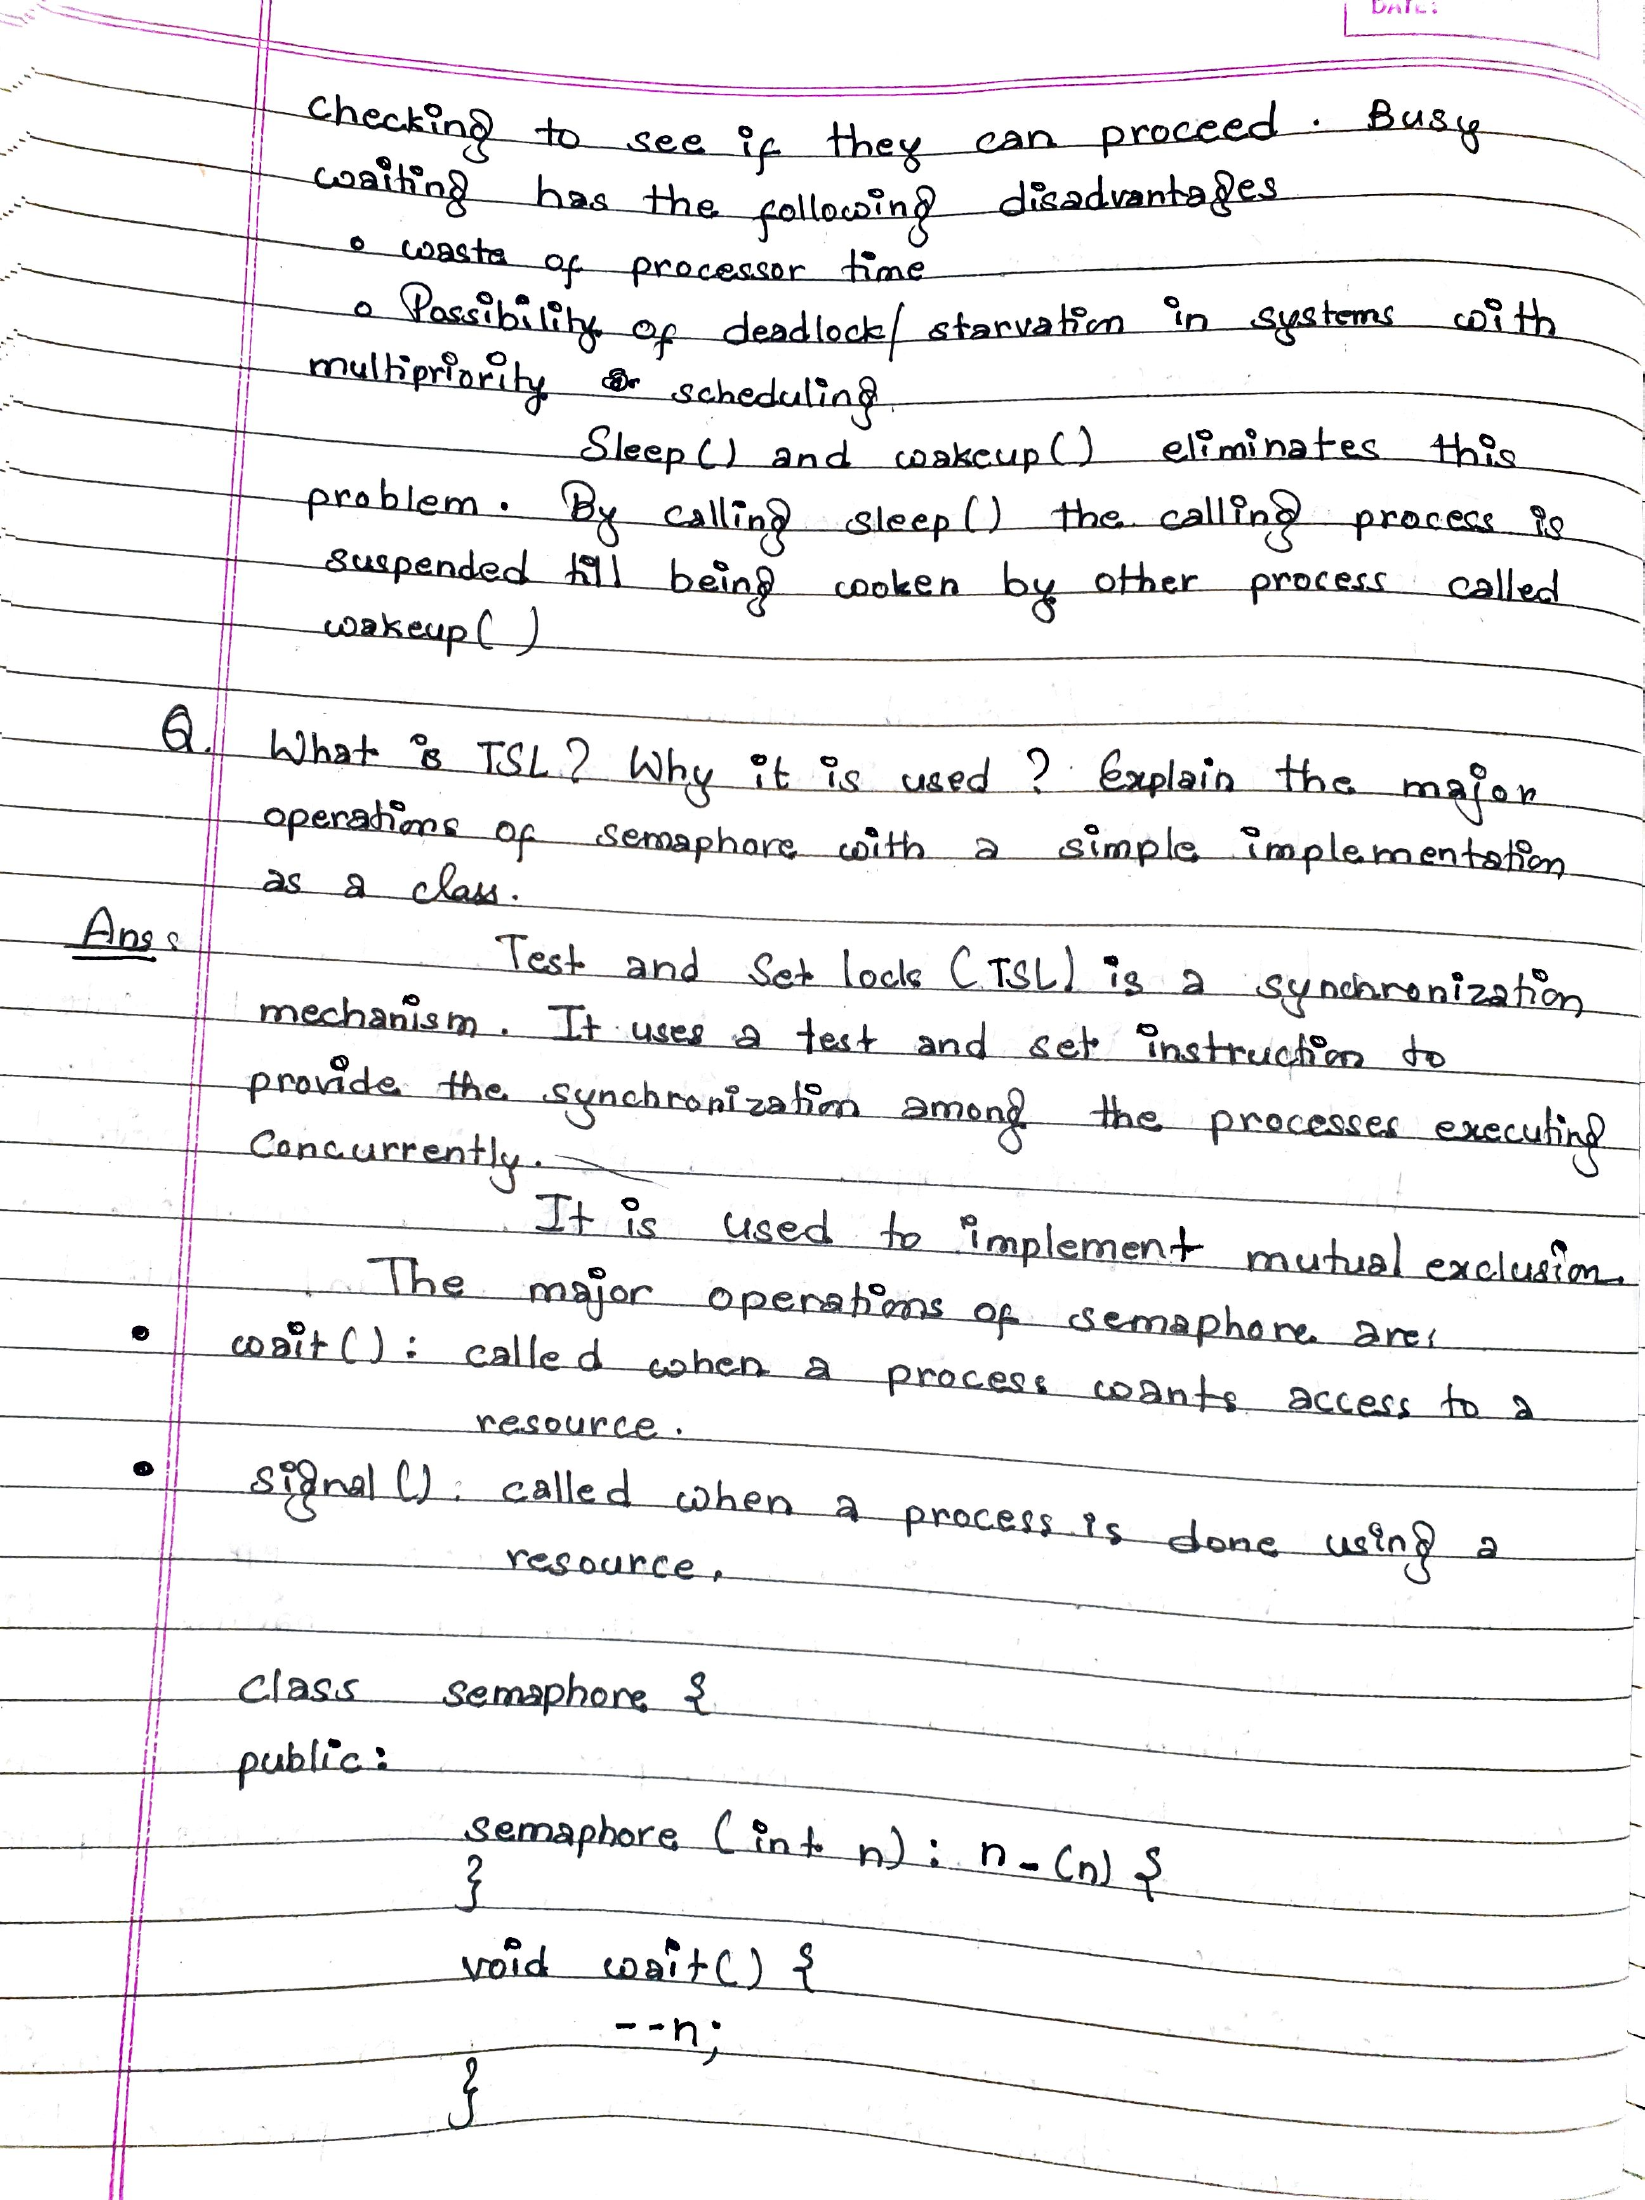 DATE:
checking to see if they can proceed. Busy
waiting has the following disadvantages
• waste of processor time
• Possibility of deadlock/ starvation in systems with
multipriority scheduling
Sleep() and wakeup() eliminates this
problem. By calling sleep() the calling process is
suspended till being woken by other process called
wakeup()
Q. What is TSL? Why it is used? Explain the major
operations of semaphore with a simple implementation
as a class.
Ans: Test and Set lock (TSL) is a synchronization
mechanism. It uses a test and set instruction to
provide the synchronization among the processes executing
Concurrently.
It is used to implement mutual exclusion.
The major operations of semaphore are:
• wait(): called when a process wants access to a
resource.
• signal(): called when a process is done using a
resource.
class semaphore {
public:
semaphore (int n) : n-(n) {
}
void wait() {
--n;
}